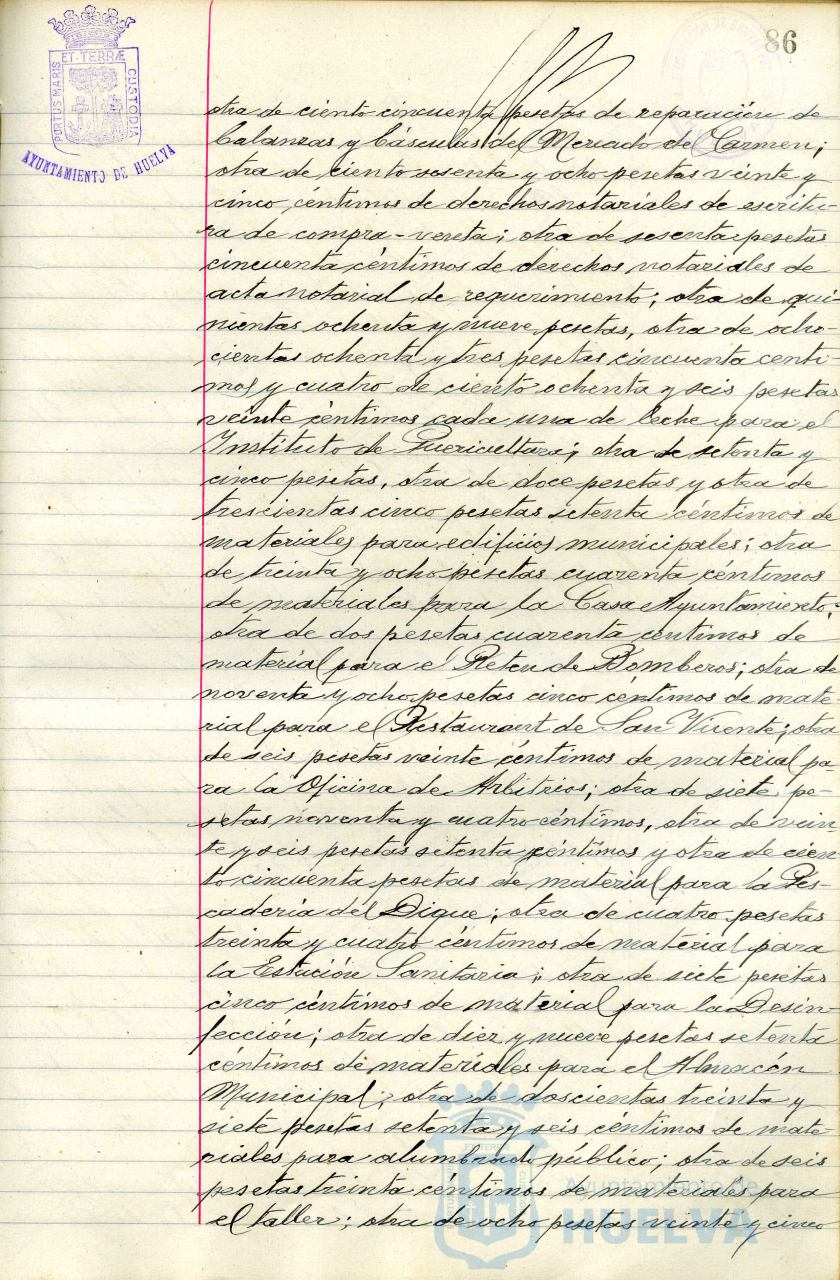 86
PORTUS MARIS ET TERRÆ CUSTODIA
AYUNTAMIENTO DE HUELVA
otra de ciento cincuenta pesetas de reparación de
balanzas y básculas del Mercado del Carmen;
otra de ciento sesenta y ocho pesetas veinte y
cinco céntimos de derechos notariales de escritu-
ra de compra-venta; otra de sesenta pesetas
cincuenta céntimos de derechos notariales de
acta notarial de requerimiento; otra de qui-
nientas ochenta y nueve pesetas, otra de ocho-
cientas ochenta y tres pesetas cincuenta centi-
mos y cuatro de ciento ochenta y seis pesetas
veinte céntimos cada una de leche para el
Instituto de Puericultura; otra de setenta y
cinco pesetas, otra de doce pesetas y otra de
trescientas cinco pesetas setenta céntimos de
materiales para edificios municipales; otra
de treinta y ocho pesetas cuarenta céntimos
de materiales para la Casa Ayuntamiento;
otra de dos pesetas cuarenta céntimos de
material para el Reten de Bomberos; otra de
noventa y ocho pesetas cinco céntimos de mate
rial para el Restaurant de San Vicente; otra
de seis pesetas veinte céntimos de material pa
ra la Oficina de Arbitrios; otra de siete pe-
setas noventa y cuatro céntimos, otra de vein
te y seis pesetas setenta céntimos y otra de cien
to cincuenta pesetas de material para la Pes-
cadería del Dique; otra de cuatro pesetas
treinta y cuatro céntimos de material para
la Estación Sanitaria; otra de siete pesetas
cinco céntimos de material para la Desin-
fección; otra de diez y nueve pesetas setenta
céntimos de materiales para el Almacén
Municipal; otra de doscientas treinta y
siete pesetas setenta y seis céntimos de mate-
riales para alumbrado público; otra de seis
pesetas treinta céntimos de materiales para
el taller; otra de ocho pesetas veinte y cinco
Ayuntamiento de
HUELVA